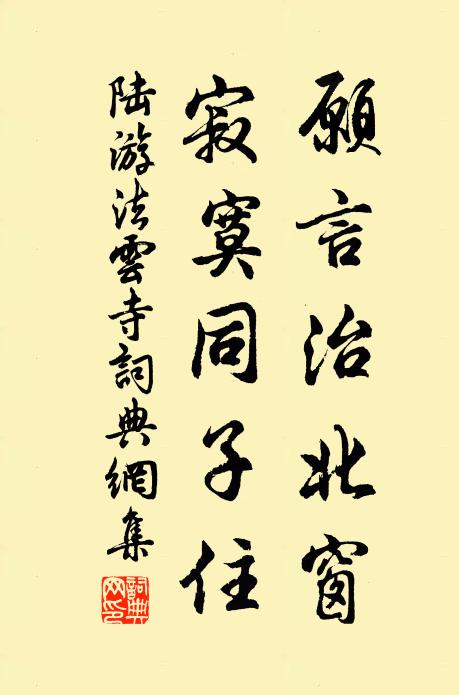 願言治北窗
寂寞同子住
陆游法雲寺詞典網集
詞典網印